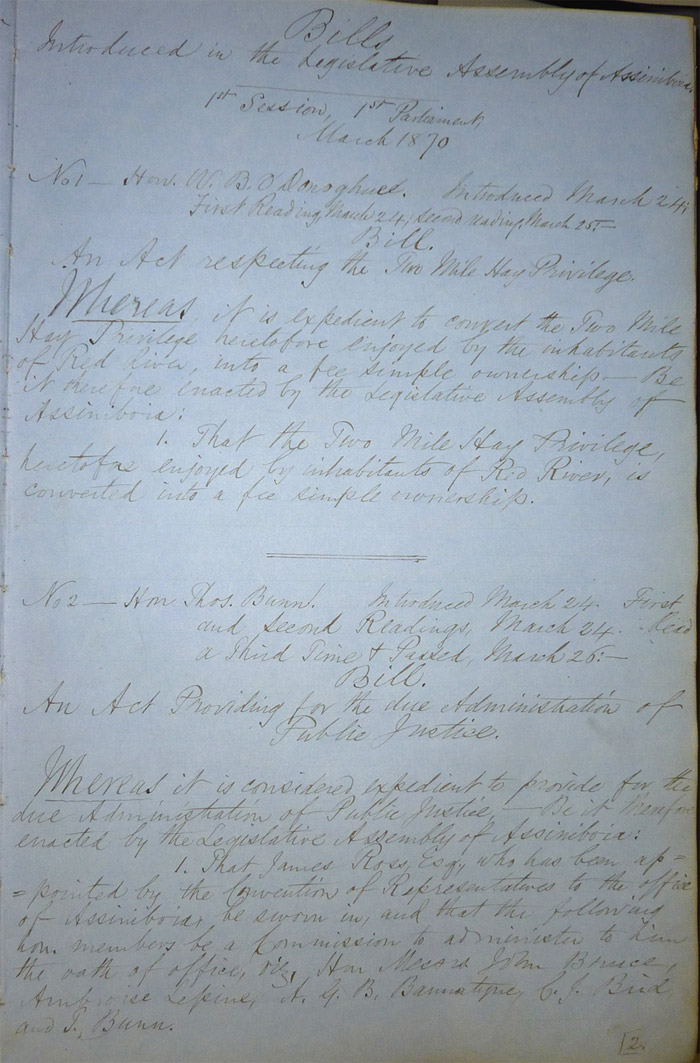 Bills
Introduced in the Legislative Assembly of Assiniboia,
1st Session, 1st Parliament,
March 1870
No 1 — Hon. W. B. O'Donoghue. Introduced March 24;
First Reading, March 24; second reading, March 25.—
Bill.
An Act respecting the Two Mile Hay Privilege.
Whereas, it is expedient to convert the Two Mile
Hay Privilege heretofore enjoyed by the inhabitants
of Red River, into a fee simple ownership — Be
it therefore enacted by the Legislative Assembly of
Assiniboia:
1. That the Two Mile Hay Privilege,
heretofore enjoyed by inhabitants of Red River, is
converted into a fee simple ownership.
No 2 — Hon Thos. Bunn. Introduced March 24. First
and second Readings, March 24. Read
a Third Time & Passed, March 26.—
Bill.
An Act Providing for the due Administration of
Public Justice.
Whereas it is considered expedient to provide for the
due Administration of Public Justice — Be it therefore
enacted by the Legislative Assembly of Assiniboia:
1. That, James Ross, Esq., who has been ap=
=pointed by the Convention of Representatives to the office
of Assiniboia, be sworn in, and that the following
hon. members be a Commission to administer to him
the oath of office, viz, Hon Messrs John Bruce,
Ambroise Lepine, A. G. B. Bannatyne, C. J. Bird
and T. Bunn.
2.